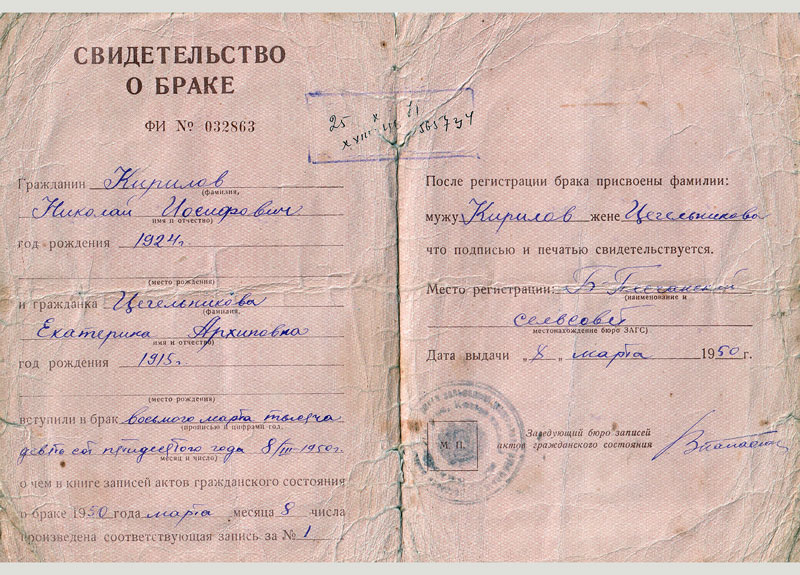 СВИДЕТЕЛЬСТВО
О БРАКЕ
ФИ № 032863
Гражданин Кирилов
(фамилия,
Николай Иосифович
имя и отчество)
год рождения 1924г.
(место рождения)
и гражданка Цегельникова
(фамилия,
Екатерина Архиповна
имя и отчество)
год рождения 1915г.
(место рождения)
вступили в брак восьмого марта тысяча
(прописью и цифрами год,
девятсот пятидесятого года 8/III-1950г.
месяц и число)
о чем в книге записей актов гражданского состояния
о браке 1950 года марта месяца 8 числа
произведена соответствующая запись за № 1
25 X 71
XVIII 565734
После регистрации брака присвоены фамилии:
мужу Кирилов жене Цегельникова
что подписью и печатью свидетельствуется.
Место регистрации: Б-
(наименование и
сельсовет
местонахождение бюро ЗАГС)
Дата выдачи „8„ марта 1950 г.
М. П.
Заведующий бюро записей
актов гражданского состояния